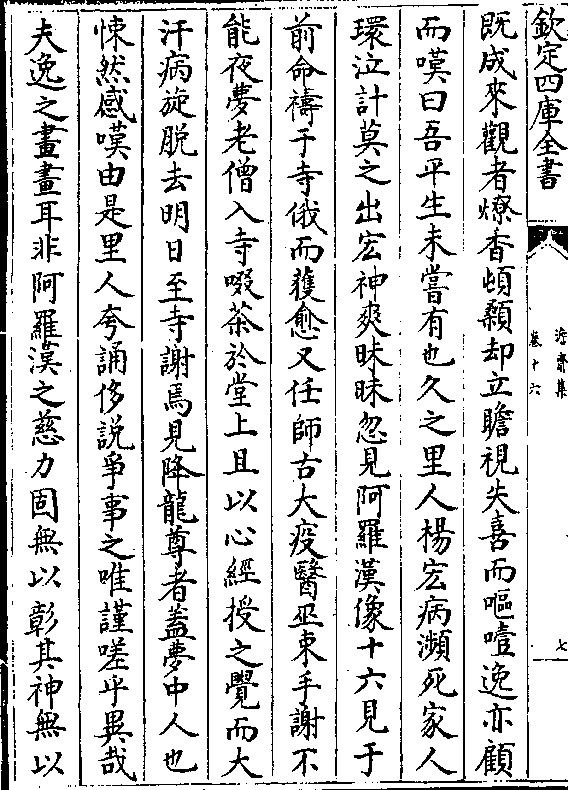 欽定四庫全書
卷十六
七
既成來觀者燎香頓顙却立瞻視失喜而嘔噎逸亦顧
而嘆曰吾平生未嘗有也久之里人楊宏病瀕死家人
環泣計莫之出宏神爽昧昧忽見阿羅漢像十六見于
前命禱于寺俄而獲愈又任師古大疫醫巫束手謝不
能夜夢老僧入寺啜茶於堂上且以心經授之覺而大
汗病旋脱去明日至寺謝焉見降龍尊者蓋夢中人也
悚然感嘆由是里人夸誦侈説爭事之唯謹嗟乎異哉
夫逸之畫畫耳非阿羅漢之慈力固無以彰其神無以